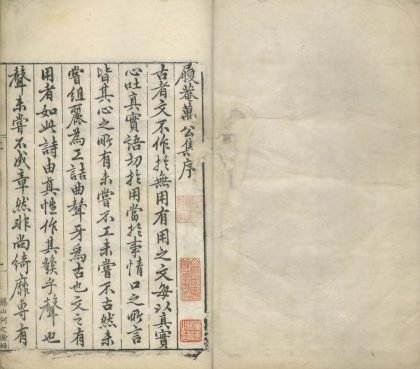 履菴萬公集序
古者文不作於無用有用之文每以真實
心吐真實語切於用當於事情口之所言
皆其心之所有未嘗不工未嘗不古然未
嘗組麗為工詰曲聱牙為古也文之有
用者如此詩由真性作其發乎聲也
聲未嘗不成章然非尚綺靡專有